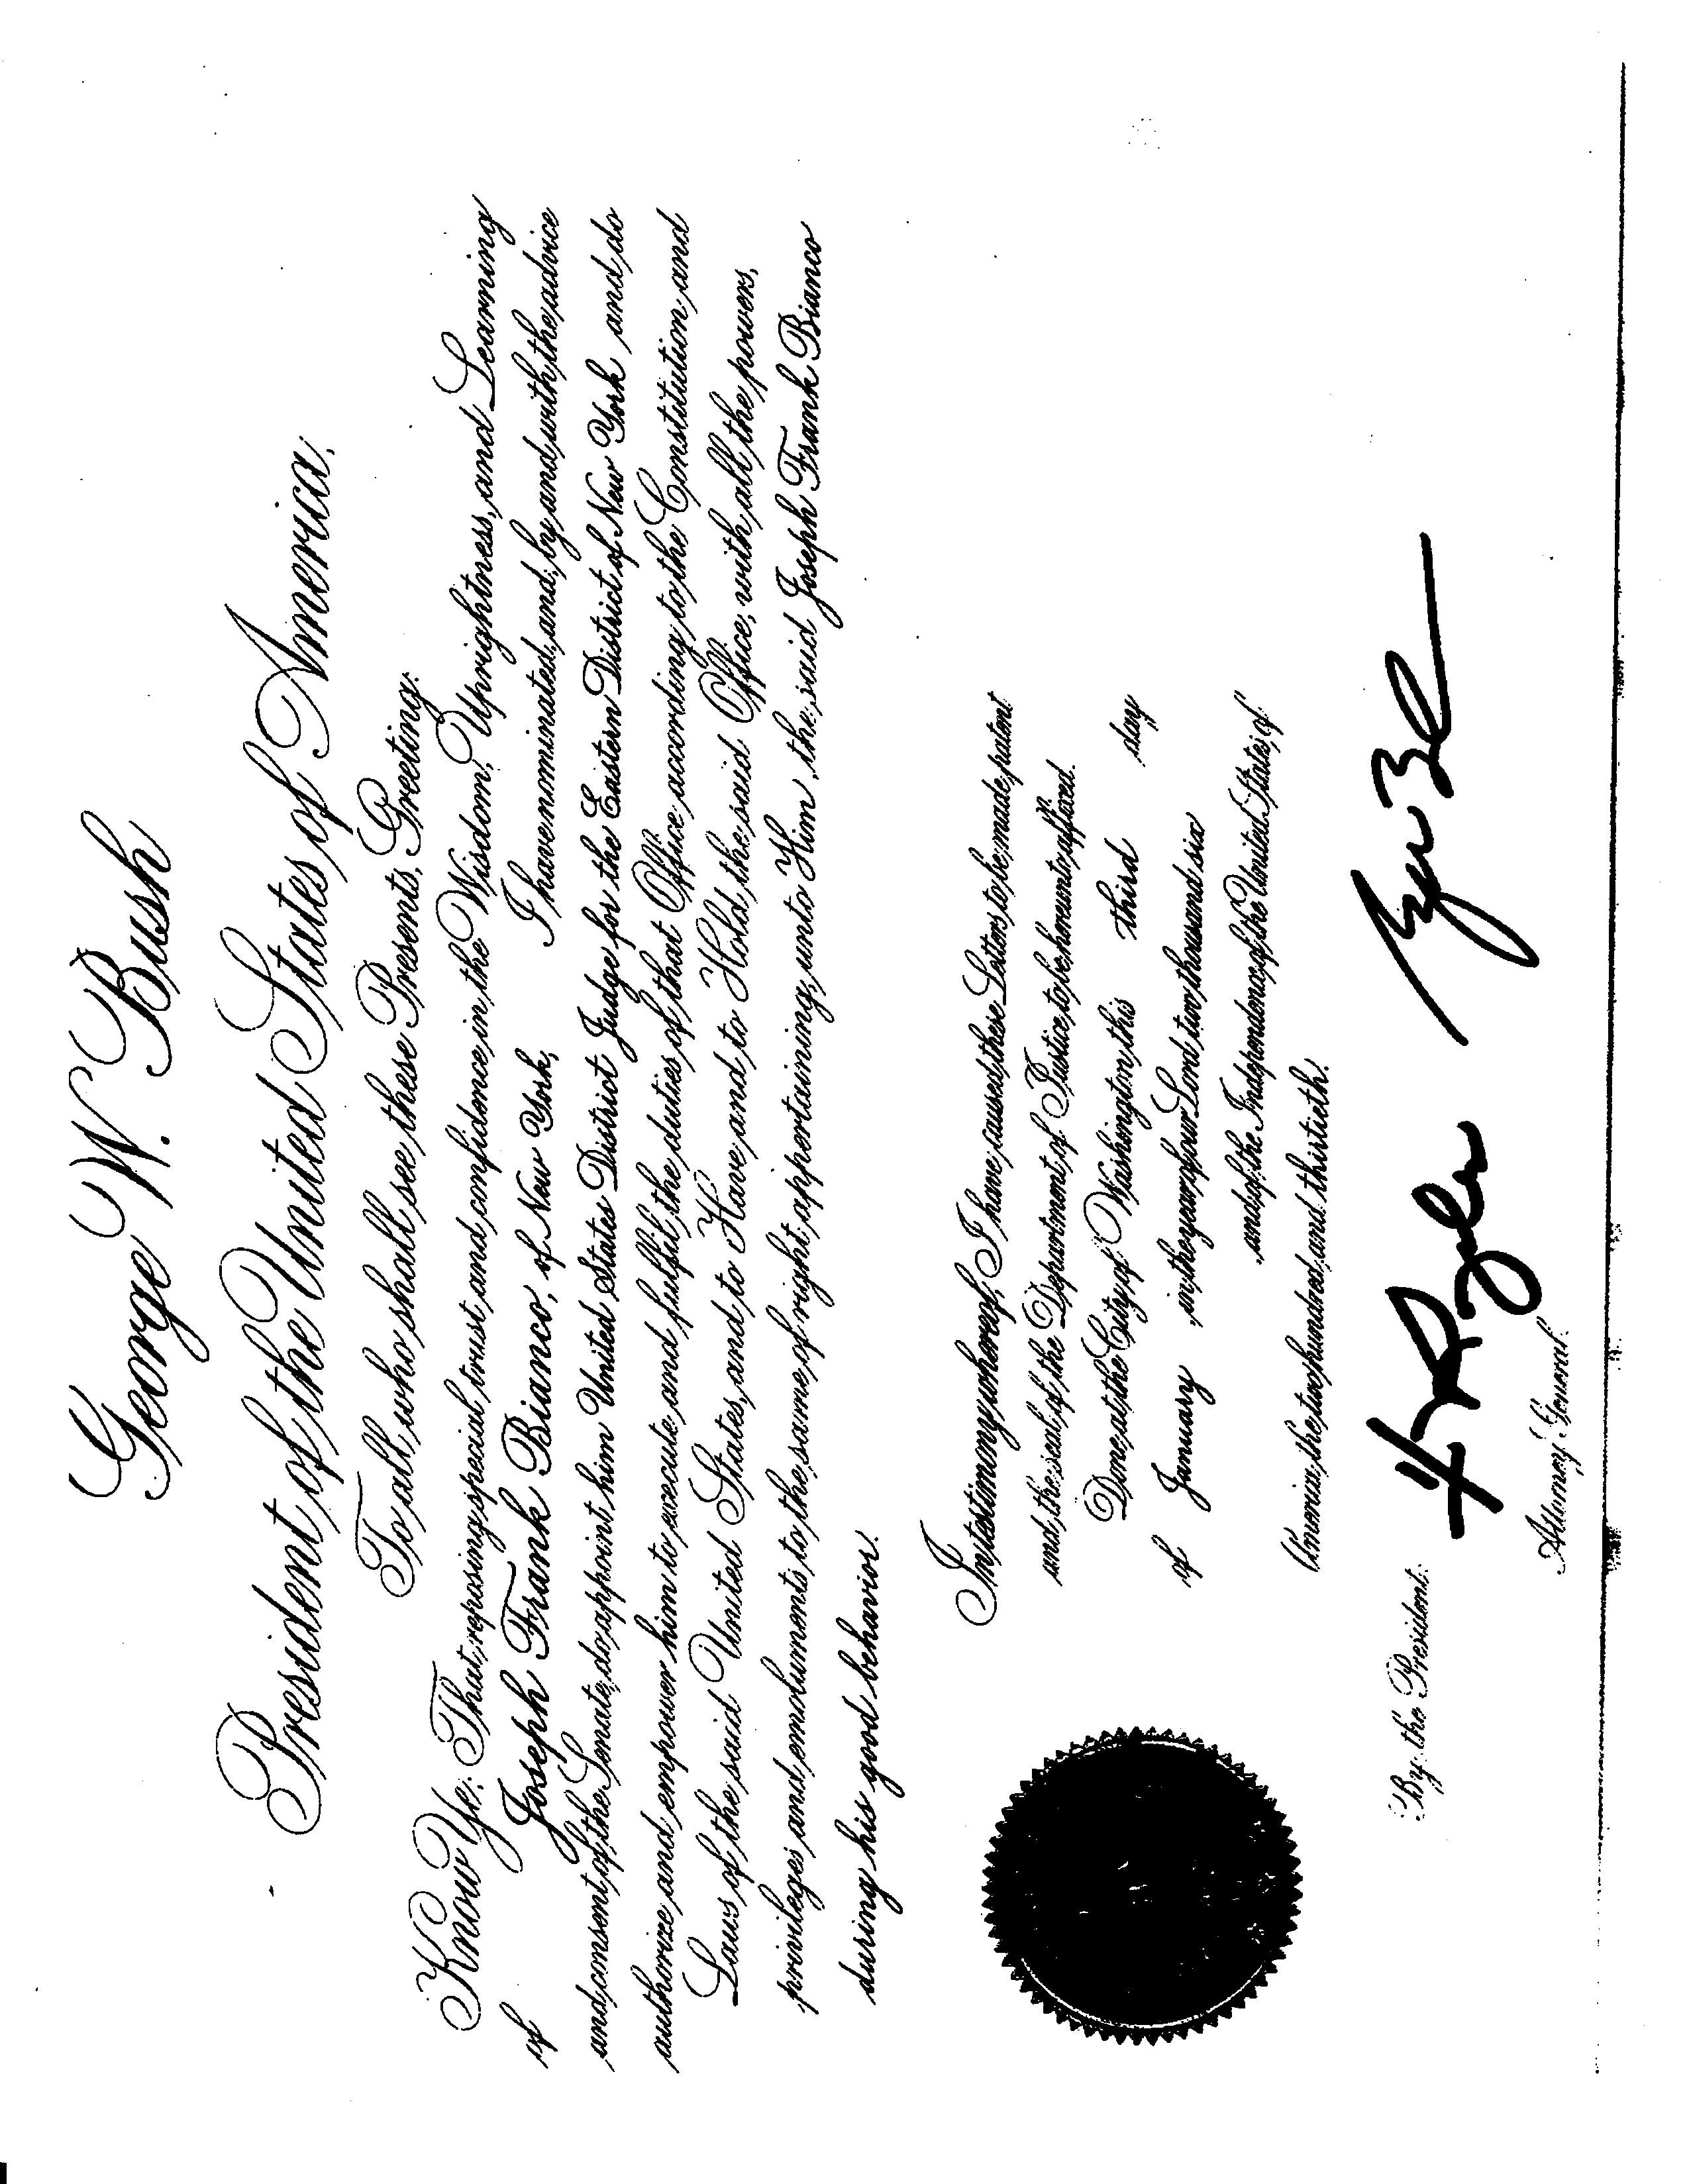 George W. Bush
President of the United States of America,
To all who shall see these Presents, Greeting:
Know Ye; That reposing special trust and confidence in the Wisdom, Uprightness, and Learning
of Joseph Frank Bianco, of New York, I have nominated, and, by and with the advice
and consent of the Senate, do appoint him United States District Judge for the Eastern District of New York and do
authorize and empower him to execute and fulfil the duties of that Office according to the Constitution and
Laws of the said United States, and to Have and to Hold the said Office, with all the powers,
privileges and emoluments to the same of right appertaining, unto Him, the said Joseph Frank Bianco
during his good behavior.
In testimony whereof, I have caused these Letters to be made patent
and the seal of the Department of Justice to be hereunto affixed.
Done at the City of Washington, this third day
of January in the year of our Lord two thousand six
and of the Independence of the United States of
America the two hundred and thirtieth.
By the President:
Attorney General.